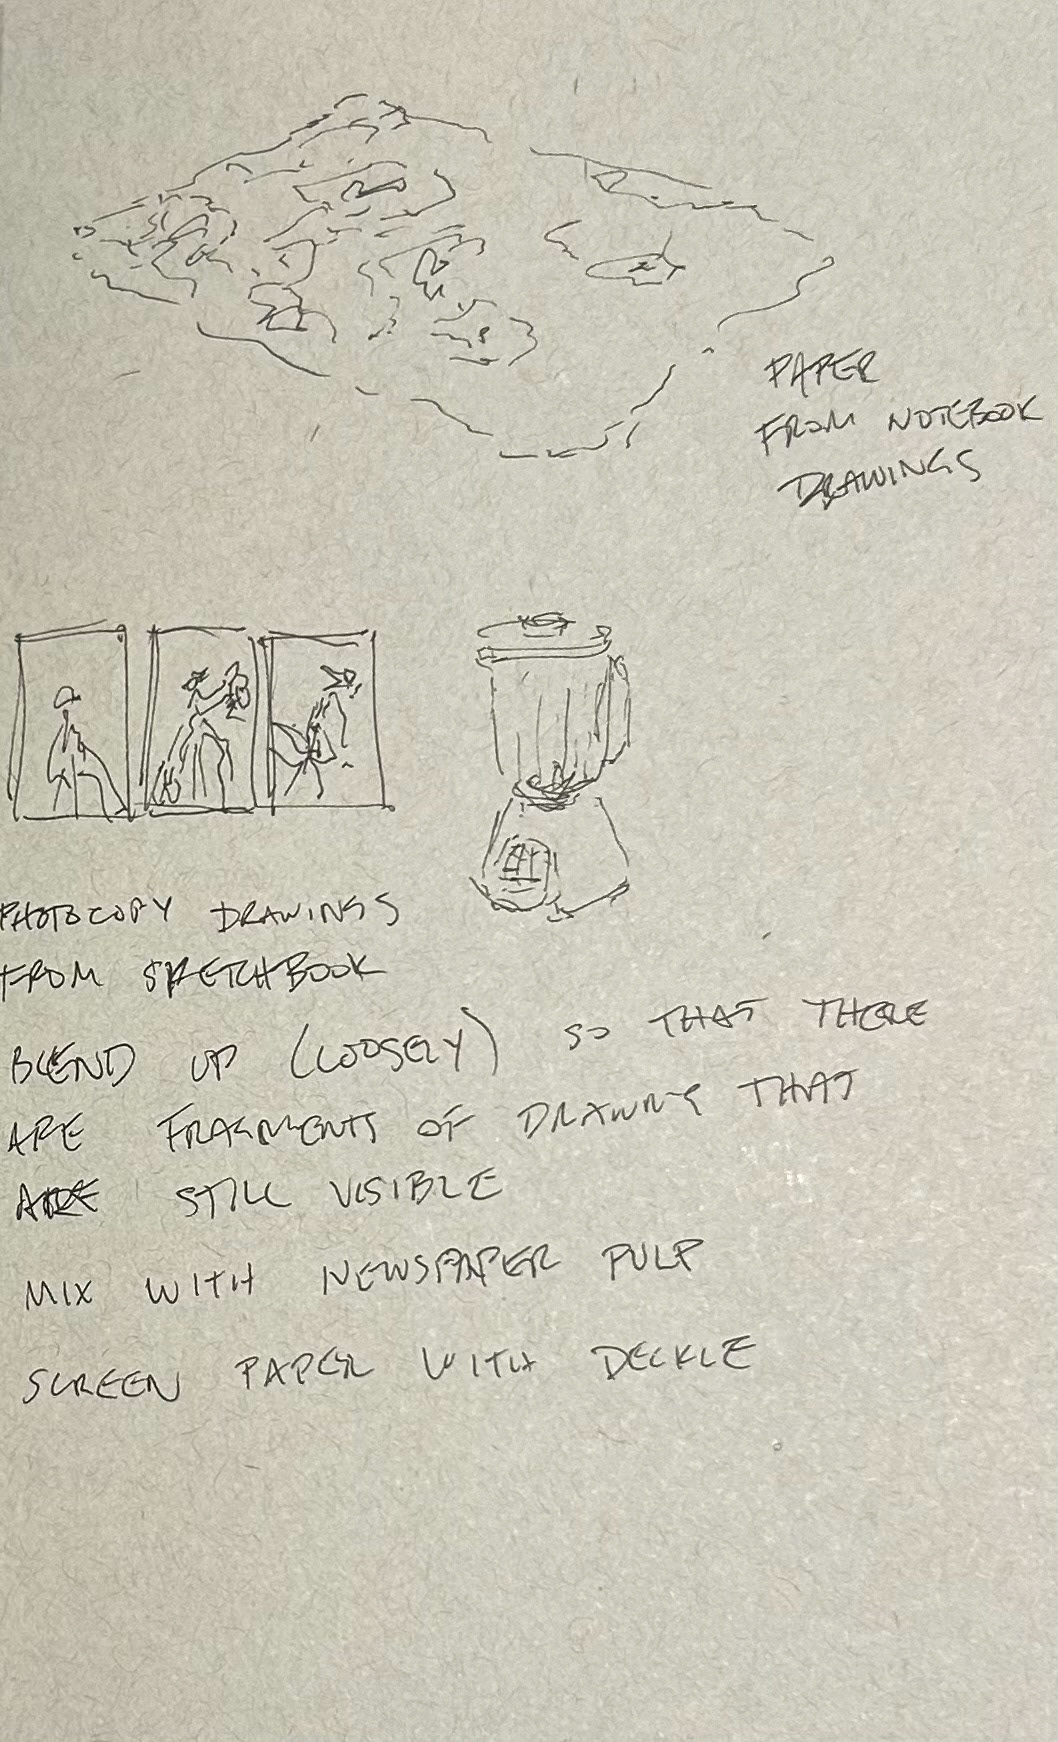 PAPER
FROM NOTEBOOK
DRAWINGS
PHOTOCOPY DRAWINGS
FROM SKETCHBOOK
BLEND UP (LOOSELY) SO THAT THERE
ARE FRAGMENTS OF DRAWING THAT
ARE STILL VISIBLE
MIX WITH NEWSPAPER PULP
SCREEN PAPER WITH DECKLE